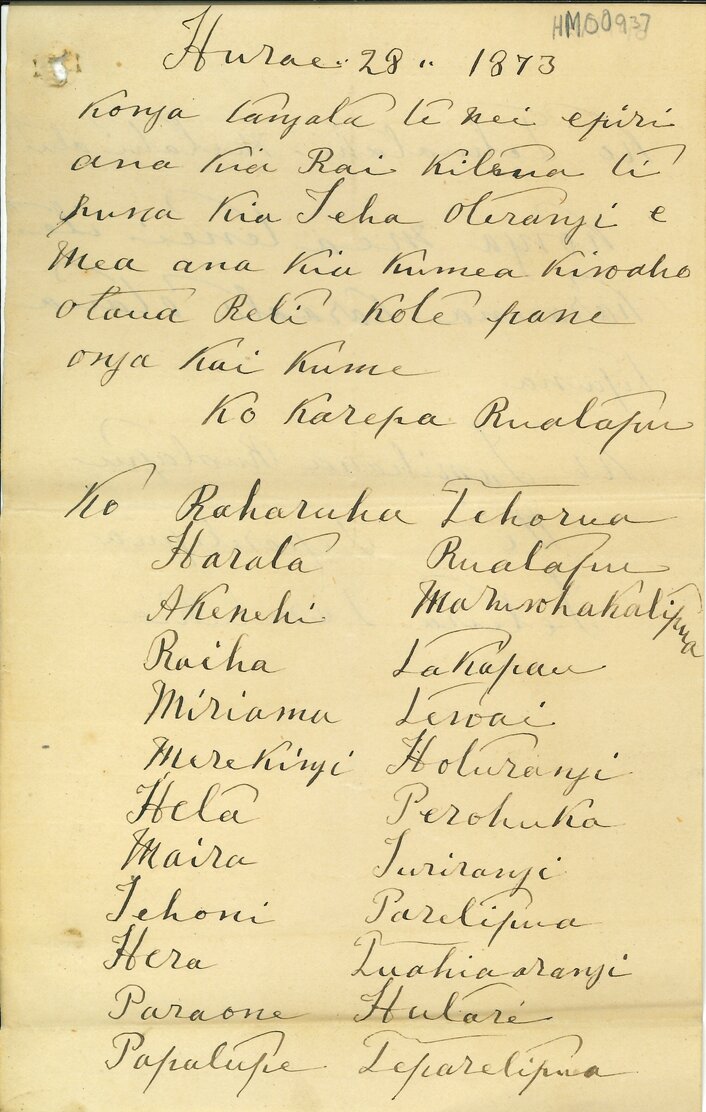 HM00937
Hurae " 28 " 1873
Konga tangata te nei epiri
ana kia Rai kitena ti
huna kia Teha oterangi e
mea ana kia kumea kiwaho
otaua Reti kote pane
onga kai kume
Ko Karepa Ruatapu
Ko Raharuha Tehorua
Harata Ruatapu
Akenehi Maruwhakatipua
Raiha Takapau
Miriama Tewai
Merekingi Hoturangi
Heta Perohuka
Maira Turirangi
Tehoni Paretipua
Hera Tuahiaorangi
Paraone Hutare
Paputupe Teparetipua